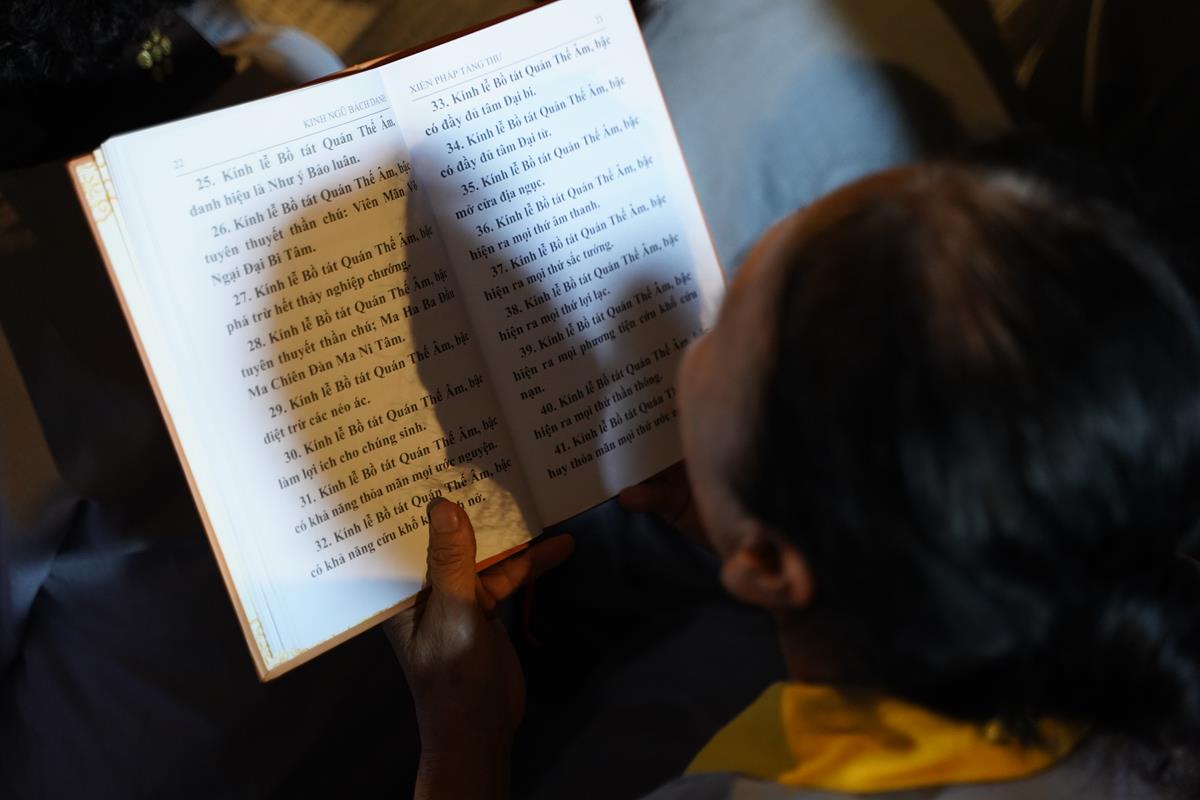 22
KINH NGŨ BÁCH DANH
25. Kính lễ Bồ tát Quán Thế Âm,
danh hiệu là Như ý Bảo luân.
26. Kính lễ Bồ tát Quán Thế Âm, bậc
tuyên thuyết thần chú: Viên Mãn Vô
Ngại Đại Bi Tâm.
27. Kính lễ Bồ tát Quán Thế Âm, bậc
phá trừ hết thảy nghiệp chướng.
28. Kính lễ Bồ tát Quán Thế Âm, bậc
tuyên thuyết thần chú; Ma Ha Ba Đầu
Ma Chiên Đàn Ma Ni Tâm.
29. Kính lễ Bồ tát Quán Thế Âm, bậc
diệt trừ các nẻo ác.
30. Kính lễ Bồ tát Quán Thế Âm, bậc
làm lợi ích cho chúng sinh.
31. Kính lễ Bồ tát Quán Thế Âm, bậc
có khả năng thỏa mãn mọi ước nguyện.
32. Kính lễ Bồ tát Quán Thế Âm, bậc
có khả năng cứu khổ nở.
XIỂN PHÁP TÀNG THƯ
33. Kính lễ Bồ tát Quán Thế Âm, bậc
có đầy đủ tâm Đại bi.
34. Kính lễ Bồ tát Quán Thế Âm, bậc
có đầy đủ tâm Đại từ.
35. Kính lễ Bồ tát Quán Thế Âm, bậc
mở cửa địa ngục.
36. Kính lễ Bồ tát Quán Thế Âm, bậc
hiện ra mọi thứ âm thanh.
37. Kính lễ Bồ tát Quán Thế Âm, bậc
hiện ra mọi thứ sắc tướng.
38. Kính lễ Bồ tát Quán Thế Âm, bậc
hiện ra mọi thứ lợi lạc.
39. Kính lễ Bồ tát Quán Thế Âm, bậc
hiện ra mọi phương tiện cứu khổ cứu
nạn.
40. Kính lễ Bồ tát Quán Thế Âm,
hiện ra mọi thứ thần thông.
41. Kính lễ Bồ tát Quán Thế
hay thỏa mãn mọi thứ ước